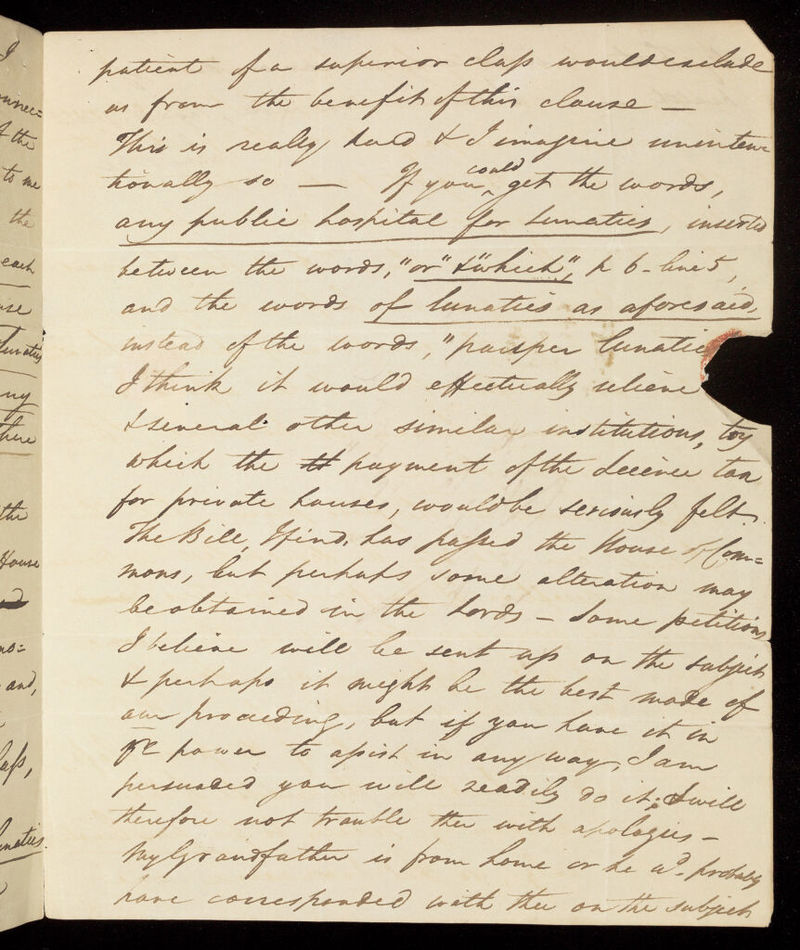 patient of a superior class would exclude
us from the benefit of this clause —
This is really hard & I imagine uninten=
tionally so — If you could get the words,
any public hospital for Lunatics, inserted
between the words, "or" & "which", p 6 - line 5,
and the words of lunatics as aforesaid,
instead of the words, "pauper lunatic
I think it would effectually relieve
& several other similar institutions, by
which the payment of the licence tax
for private houses, would be seriously felt.
The Bill, I find, has passed the House of Com=
mons, but perhaps some alteration may
be obtained in the Lords — Some petitions
I believe will be sent up on the subject
& perhaps it might be the best mode of
our proceeding, but if you have it in
yr power to assist in any way, I am
persuaded you will readily do it; I will
therefore not trouble thee with apologies —
My Grandfather is from home or he wd. probably
have corresponded with thee on the subject
I
onnec=
of the
to me
the
each
use
lunatics
ny
there
the
House
and,
lass,
lunatics.